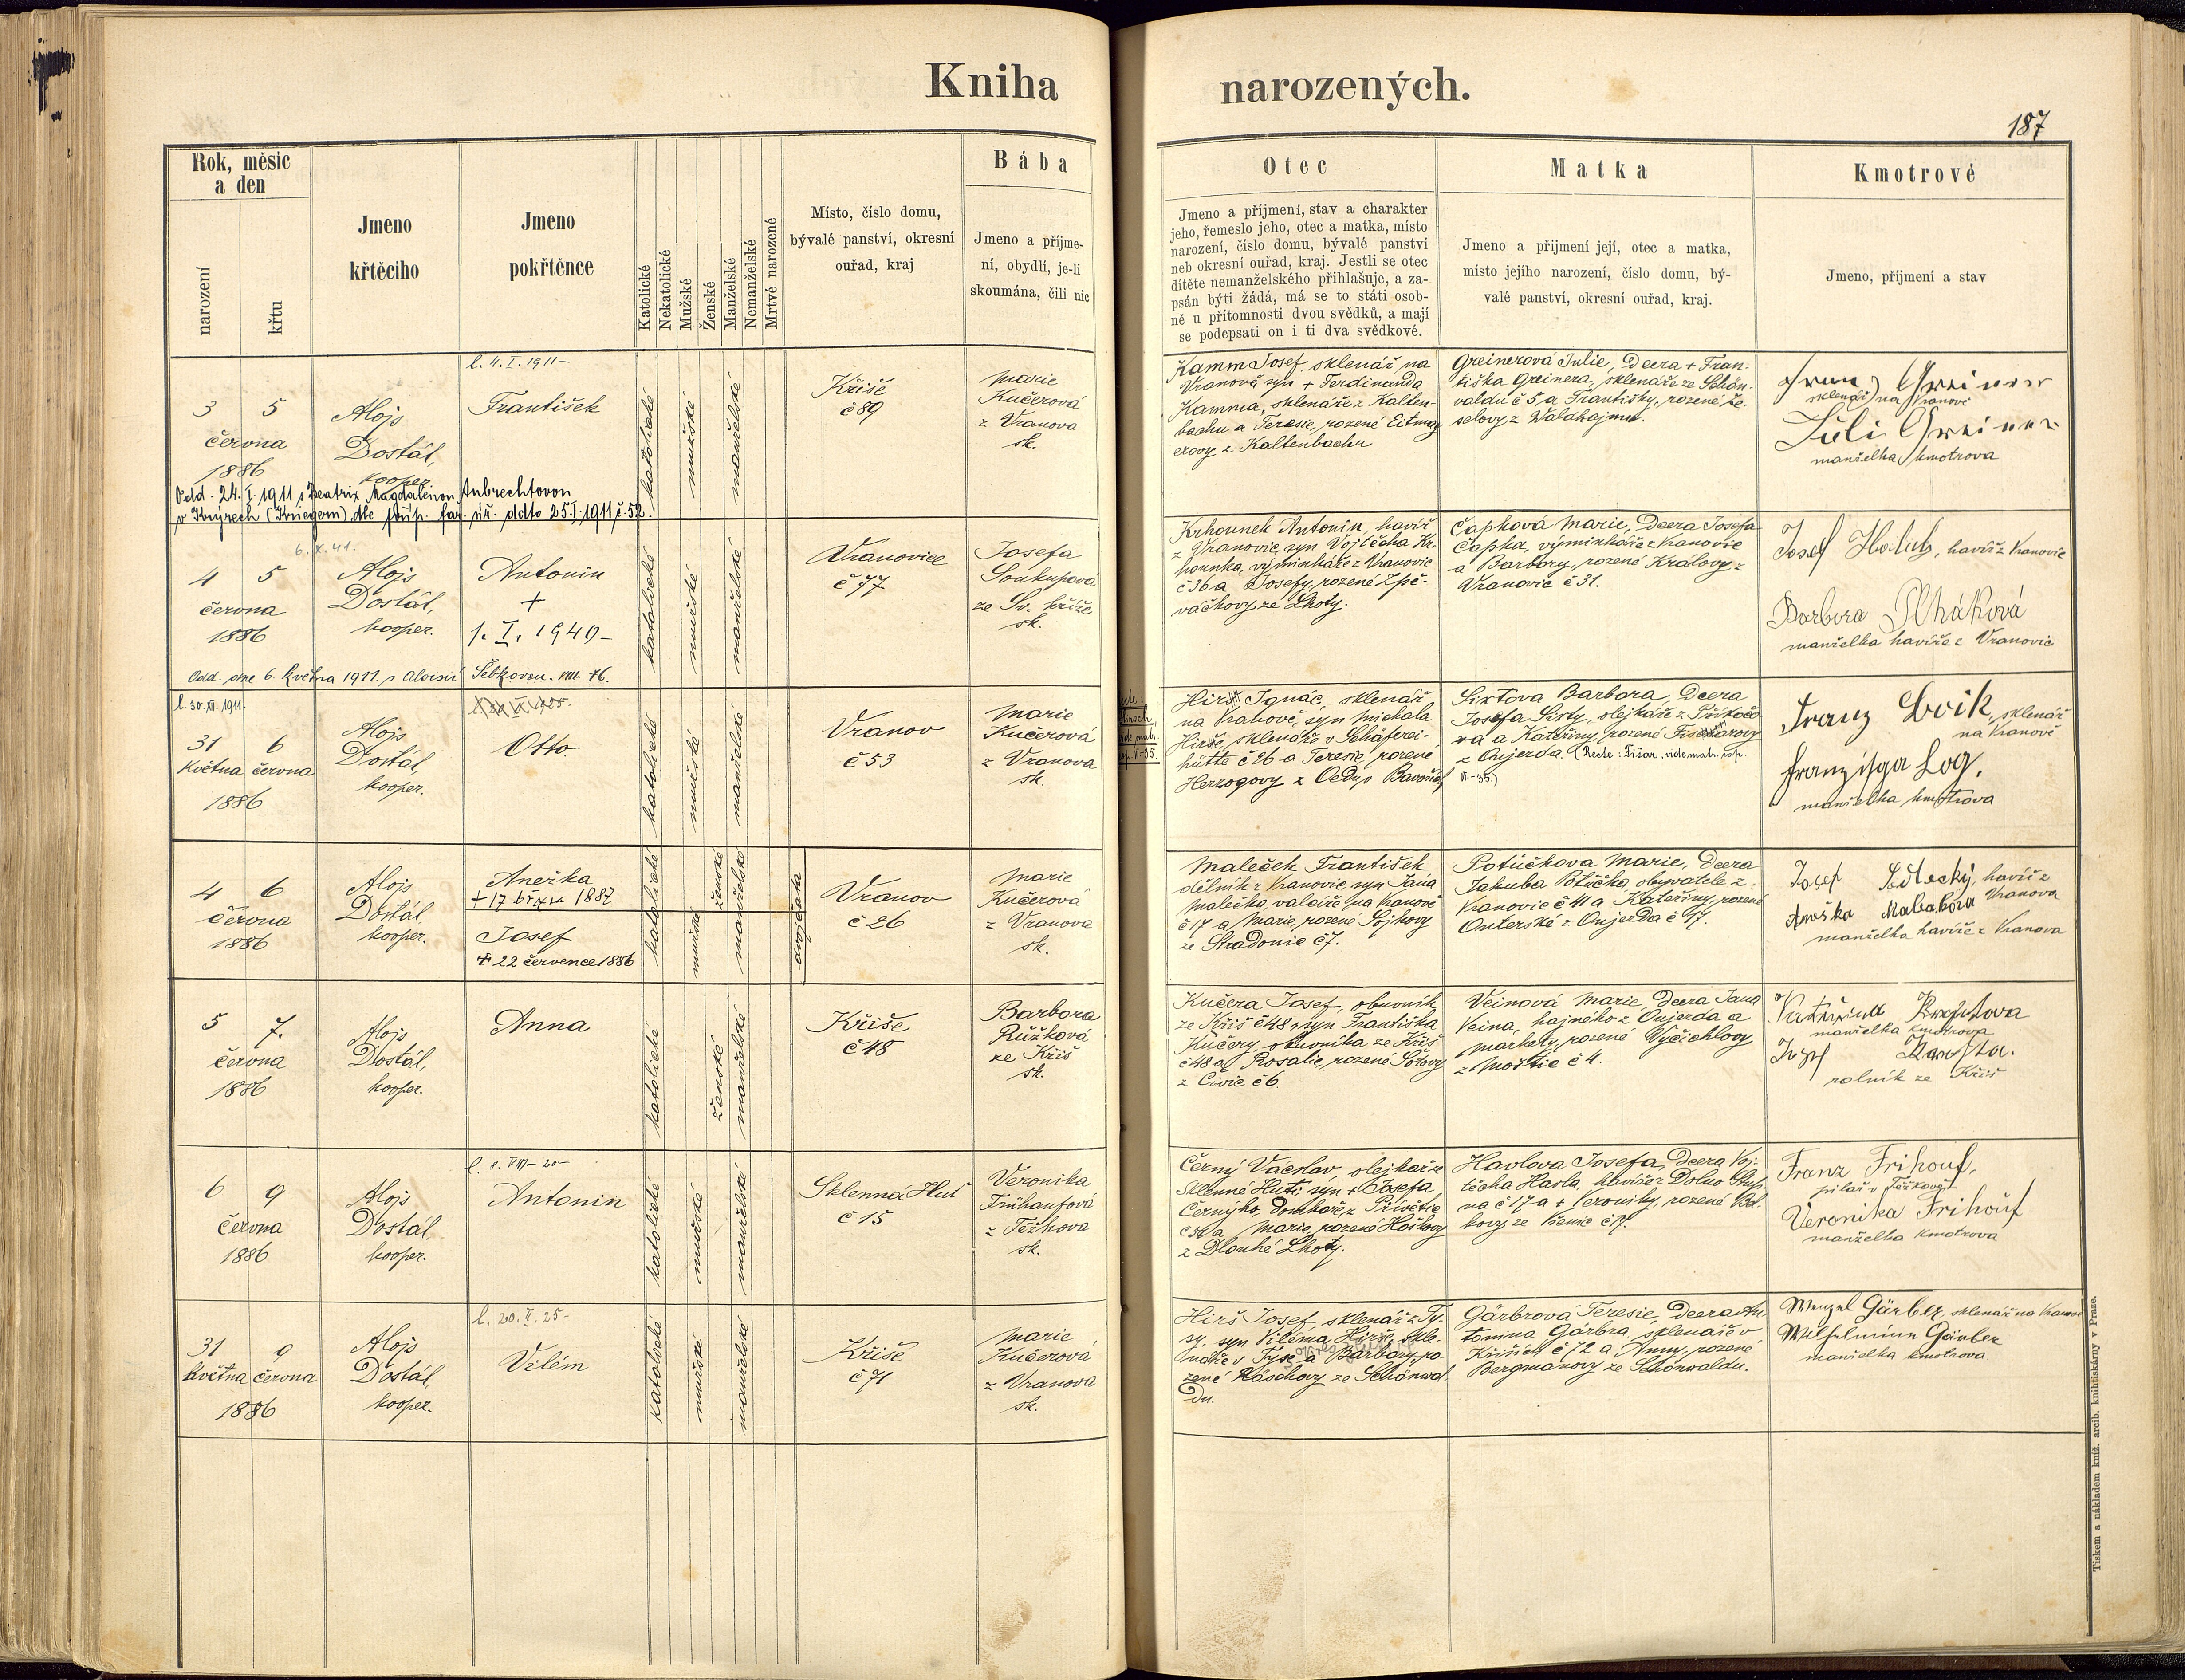 Kniha narozených.
187
Rok, měsíc
a den
narození
křtu
Jmeno
křtěcího
Jmeno
pokřtěnce
Katolické
Nekatolické
Mužské
Ženské
Manželské
Nemanželské
Mrtvé narozené
Místo, číslo domu,
bývalé panství, okresní
ouřad, kraj
Bába
Jmeno a příjme-
ní, obydlí, je-li
skoumána, čili nic
Otec
Jmeno a příjmení, stav a charakter
jeho, řemeslo jeho, otec a matka, místo
narození, číslo domu, bývalé panství
neb okresní ouřad, kraj. Jestli se otec
dítěte nemanželského přihlašuje, a za-
psán býti žádá, má se to státi osob-
ně u přítomnosti dvou svědků, a mají
se podepsati on i ti dva svědkové.
Matka
Jmeno a přijmení její, otec a matka,
místo jejího narození, číslo domu, bý-
valé panství, okresní ouřad, kraj.
Kmotrové
Jmeno, příjmení a stav
l. 4. I. 1911 –
3 5
června
1886
Alojs
Dostál,
kooper.
František
katolické
mužské
manželské
Kříše
č 89
Marie
Kučerová
z Vranova
sk.
Kamm Josef, sklenář na
Vranově, syn + Ferdinanda
Kamma, sklenáře z Kalten-
bachu a Terezie, rozené
z Kaltenbachu
Greinerová Julie, Dcera + Fran-
tiška Greinera, sklenáře ze Schön-
valdu č 5 a Františky, rozené
Franz Greiner
sklenář na Vranově
Juli Greiner
manželka kmotrova
Odd. 24. I. 1911 s Beatrix Magdalenou Aubrechtovou
v Knýrech (Kniegem) dle příp. far. úř. ddto 25. I. 1911 č. 52.
6. X. 41.
4 5
června
1886
Alojs
Dostál,
kooper.
Antonín
+
1. I. 1940 –
katolické
mužské
manželské
Vranovice
č 77
Josefa
Soukupová
ze Sv. kříže
sk.
Krhounek Antonín, havíř
z Vranovic, syn Vojtěcha Kr-
hounka, výminkáře z Vranovic
č 36 a Josefy, rozené Zpě-
váčkovy ze Lhoty.
Čapková Marie, Dcera Josefa
Čapka, výminkáře z Vranovic
a Barbory, rozené Královy z
Vranovic č 31.
Josef Holub, havíř z Vranovic
Barbora
manželka havíře z Vranovic
Odd. dne 6. května 1911 s Aloisií Šebkovou. VIII. 76.
l. 30. XII. 1911.
31 6
Května června
1886
Alojs
Dostál,
kooper.
Otto
katolické
mužské
manželské
Vranov
č 53
Marie
Kučerová
z Vranova
sk.
Hirš Ignác, sklenář
na Vranově, syn Michala
Hirše, sklenáře v Schäferei-
hütte č 26 a Terezie, rozené
Herzogovy z Oedu, v Bavořích
Sixtova Barbora, Dcera
Josefa Sixty, olejkáře z Příkos-
ra a Kateřiny, rozené
z Oujezda. (Recte: Fišar, vide matr. cop.
VI-35.)
Franz Lvik, sklenář
na Vranově
Franziska Log,
manželka kmotrova
4 6
června
1886
Alojs
Dostál
kooper.
Anežka
+ 17 března 1887
Josef
+ 22 července 1886
katolické
ženské
mužské
manželské
dvojčata
Vranov
č 26
Marie
Kučerová
z Vranova
sk.
Maleček František
dělník z Vranovic, syn Jana
Malečka, valcíře na Vranově
č 17 a Marie, rozené Sojkovy
ze Stradonic č 7.
Potůčkova Marie, Dcera
Jakuba Potůčka, obyvatele z
Vranovic č 41 a Kateřiny, rozené
Outerské z Oujezda č 97.
Josef Sedlecký, havíř z
Vranova
Anežka
manželka havíře z Vranova
5 7.
června
1886
Alojs
Dostál,
kooper.
Anna
katolické
ženské
manželské
Kříše
č 48
Barbora
Růžková
ze Kříš
sk.
Kučera Josef, obuvník
ze Kříš č 48, syn Františka
Kučery, obuvníka ze Kříš
č 48 a Rosalie, rozené
z Čivic č 6.
Veinová Marie, Dcera Jana
Veina, hajného z Oujezda a
Markety, rozené Vyčichlovy
z Moštic č 4.
Kateřina
manželka kmotrova
Josef
rolník ze Kříš
l. 8. VIII – 20 –
6 9
června
1886
Alojs
Dostál
kooper.
Antonín
katolické
mužské
manželské
Sklenná Huť
č 15
Veronika
Frühaufová
z Těžkova
sk.
Černý Václav, olejkář z
Sklenné Huti, syn + Josefa
Černýho, domkáře z Přívětic
č 51 a Marie, rozené Haškovy
z Dlouhé Lhoty.
Havlova Josefa, Dcera Voj-
těcha Havla, havíře z Dolno
na č 17 a + Veroniky, rozené
Franz Frihouf,
pilař v Těškově
Veronika Frihouf
manželka kmotrova
l. 20. II. 25 –
31 9
Května června
1886
Alojs
Dostál,
kooper.
Vilém
katolické
mužské
manželské
Kříše
č 71
Marie
Kučerová
z Vranova
sk.
Hirš Josef, sklenář z Ty-
sy, syn Viléma Hirše, skle-
náře v Tyse a Barbory, ro-
zené Käschovy ze Schönwal
du.
Gärbrová Terezie, Dcera An-
tonína Gärbra, sklenáře v
Kříších č 72 a Anny, rozené
Bergmanovy ze Schönwaldu.
Wenzel Gärber, sklenář na Vranově
Wilhelmine Gärber
manželka kmotrova
Tiskem a nákladem kníž. arcib. knihtiskárny v Praze.